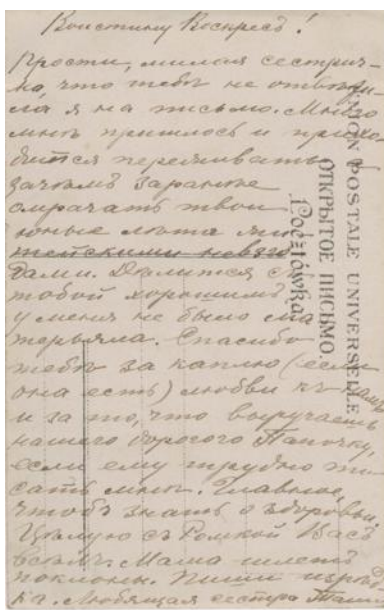 Воистину Воскресъ!
Прости, милая сестрич-
ка, что тебѣ не отвѣти-
ла я на письмо. Много
мнѣ пришлось и прихо-
дится переживать
зачѣмъ заранѣе
омрачать твои
юные лѣта жи-
тейскими невзго-
дами. Дѣлится съ
тобой хорошимъ
у меня не было ма
терьяла. Спасибо
тебѣ за каплю (если
она есть) любви къ
и за то, что выручаешь
нашего дорогого Папочку,
если ему трудно пи-
сать мнѣ. Главное,
чтобъ знать о здоровьи.
Цѣлую съ Ромкой Васъ
всѣхъ. Мама шлетъ
поклоны. Пиши
ка. Любящая сестра
UNION POSTALE UNIVERSELLE
ОТКРЫТОЕ ПИСЬМО.
Pocztówka